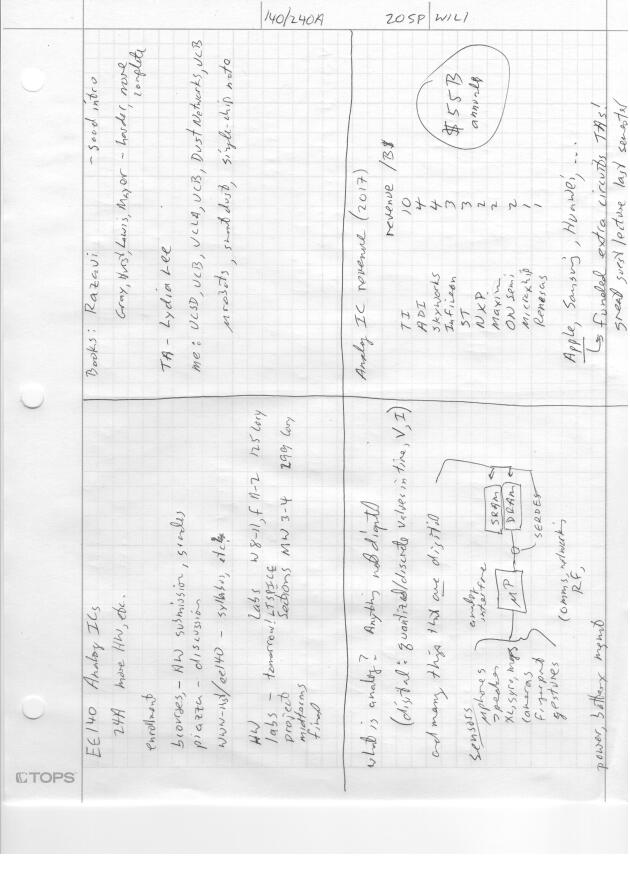 140/240A 20SP W1L1
EE140 Analog ICs
24A more HW, etc.
enrollment
bcourses – HW submission, grades
piazza – discussion
www-inst/ee140 – syllabus, etc.
HW
labs – tomorrow! LTSPICE
project
midterms
final
Labs W 8-11, F 11-2 125 Cory
Sections MW 3-4 299 Cory
Books: Razavi – good intro
Gray, Hurst, Lewis, Meyer – harder, more
complete
TA – Lydia Lee
me: UCSD, UCB, UCLA, UCB, Dust Networks, UCB
μrobots, smart dust, single-chip mote
what is analog? Anything not digital
(digital: quantized/discrete values in time, V, I)
and many things that are digital
sensors
μphones
speakers
XL, gyro, mags
cameras
fingerprint
gestures
analog
interface
μP
SRAM
DRAM
SERDES
comms, networking
RF,
power, battery mgmt
Analog IC revenue (2017)
revenue /B$
TI 10
ADI 4
Skyworks 4
Infineon 3
ST 3
NXP 2
Maxim 2
ON semi 2
Microchip 1
Renesas 1
$55B
annual
Apple, Samsung, Huawei, ...
funded extra circuits TAs!
great guest lecture last semester
TOPS